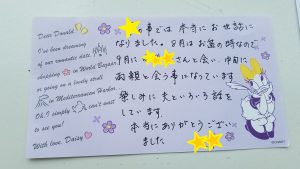 Dear Donald,
I've been dreaming
of our romantic date,
shopping in World Bazaar
or going on a lovely stroll
in Mediterranean Harbor.
Oh, I simply can't wait
to see you!
With love, Daisy
の事では本当にお世話に
なりました。8月はお盆の時なので
9月に さんと会い、中旬に
両親と会う事になっています
楽しみに夫といろいろ話を
しています。
本当にありがとうござい
ました